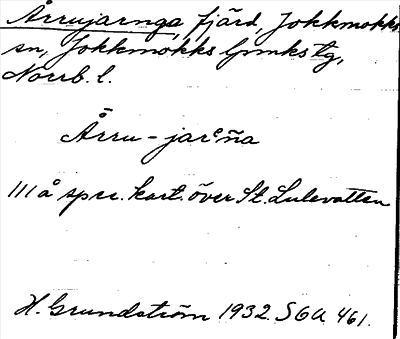 Årrujarnga, fjärd, Jokkmokks
sn, Jokkmokks lpmks tg,
Norrb. l.
Årru-jarᵉŋ̃a
111 å spec. kart. över St. Lulevatten
H. Grundström 1932. SOA 461.